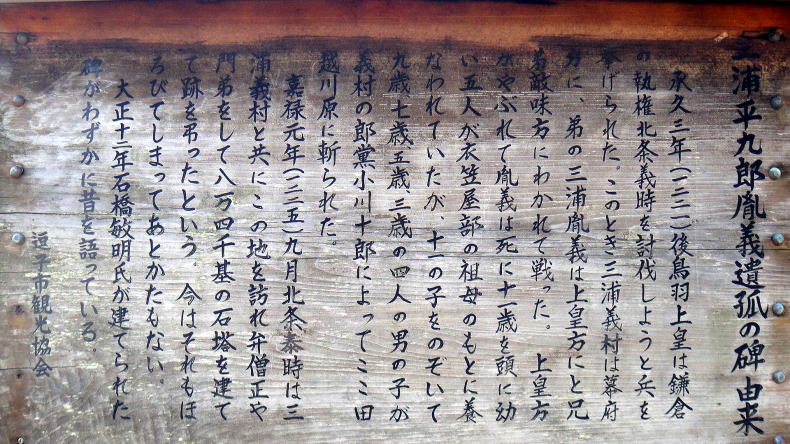 三浦平九郎胤義遺孤の碑由来
承久三年(一二二一)後鳥羽上皇は鎌倉
の執権北条義時を討伐しようと兵を
挙げられた。このとき三浦義村は幕府
方に、弟の三浦胤義は上皇方にと兄
弟敵味方にわかれて戦った。上皇方
がやぶれて胤義は死に十一歳を頭に幼
い五人が衣笠屋部の祖母のもとに養
なわれていたが、十一の子をのぞいて
九歳七歳五歳三歳の四人の男の子が
義村の郎党小川十郎によってここ田
越川原に斬られた。
嘉禄元年(一二二五)九月北条泰時は三
浦義村と共にこの地を訪れ弁僧正や
門弟をして八万四千基の石塔を建て
て跡を弔ったという。今はそれもほ
ろびてしまってあとかたもない。
大正十二年石橋敏明氏が建てられた
碑がわずかに昔を語っている。
逗子市観光協会